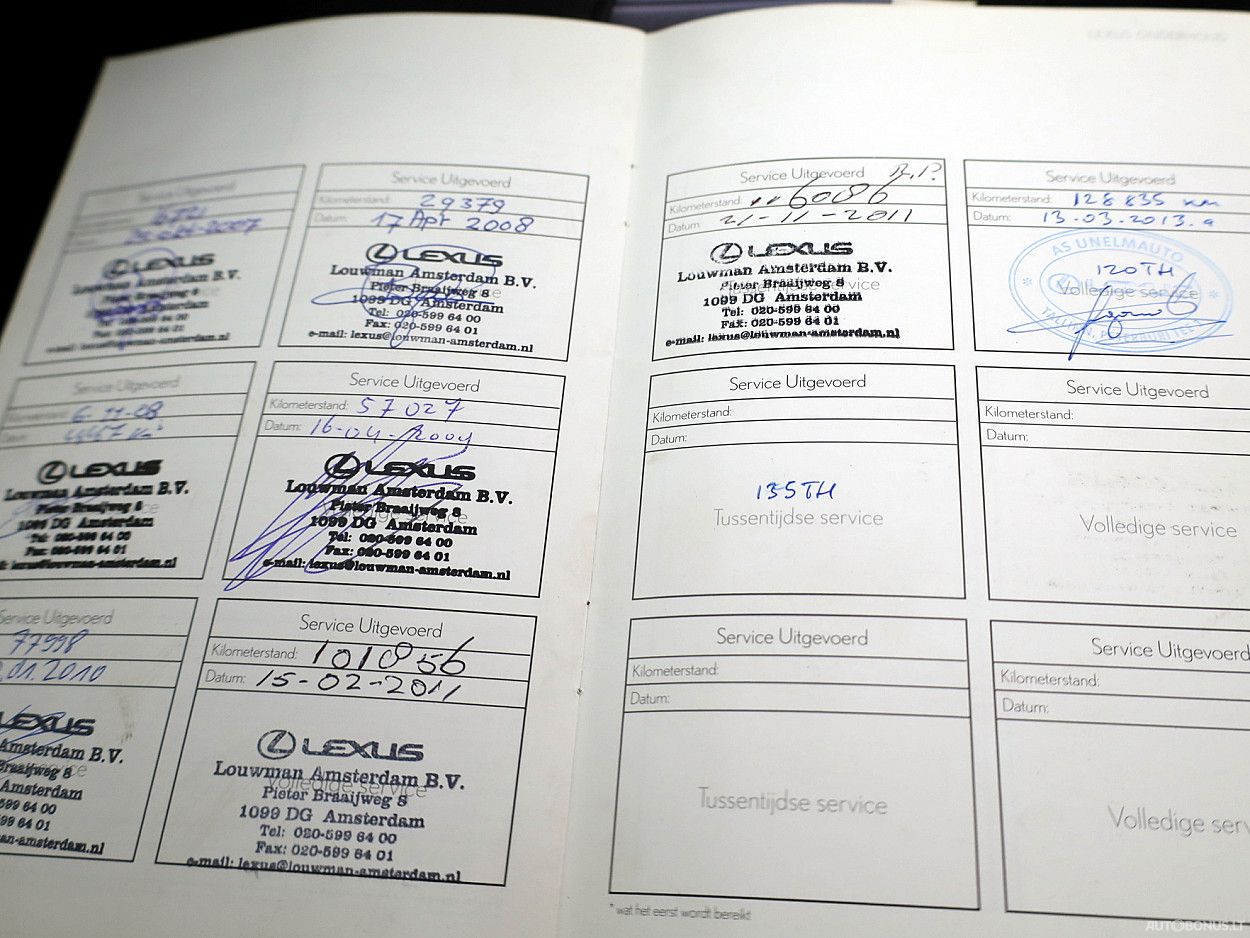 Service Uitgevoerd
LEXUS
Service Uitgevoerd
Kilometerstand: 29379
Datum: 17 Apr 2008
LEXUS
Louwman Amsterdam B.V.
Pieter Braaijweg 8
1099 DG Amsterdam
Tel: 020-599 64 00
Fax: 020-599 64 01
e-mail: lexus@louwman-amsterdam.nl
Service Uitgevoerd
6-11-08
LEXUS
Louwman Amsterdam B.V.
Pieter Braaijweg 8
1099 DG Amsterdam
Tel: 020-599 64 00
Fax: 020-599 64 01
lexus@louwman-amsterdam.nl
Service Uitgevoerd
Kilometerstand: 57027
Datum: 16-04-2009
LEXUS
Louwman Amsterdam B.V.
Pieter Braaijweg 8
1099 DG Amsterdam
Tel: 020-599 64 00
Fax: 020-599 64 01
e-mail: lexus@louwman-amsterdam.nl
Service Uitgevoerd
77998
.01.2010
LEXUS
Amsterdam B.V.
Braaijweg 8
Amsterdam
599 64 00
599 64 01
an-amsterdam.nl
Service Uitgevoerd
Kilometerstand: 101056
Datum: 15-02-2011
LEXUS
Louwman Amsterdam B.V.
Volledige service
Pieter Braaijweg 8
1099 DG Amsterdam
Tel: 020-599 64 00
Fax: 020-599 64 01
e-mail: lexus@louwman-amsterdam.nl
Service Uitgevoerd
Kilometerstand: 6086
Datum: 21-11-2011
LEXUS
Louwman Amsterdam B.V.
Tussentijdse service
Pieter Braaijweg 8
1099 DG Amsterdam
Tel: 020-599 64 00
Fax: 020-599 64 01
e-mail: lexus@louwman-amsterdam.nl
Service Uitgevoerd
Kilometerstand: 128835 km
Datum: 13.03.2013.a
AS UNELMAUTO
120TH
Volledige service
Service Uitgevoerd
Kilometerstand:
Datum:
135TH
Tussentijdse service
Service Uitgevoerd
Kilometerstand:
Datum:
Volledige service
Service Uitgevoerd
Kilometerstand:
Datum:
Tussentijdse service
Service Uitgevoerd
Kilometerstand:
Datum:
Volledige serv
* wat het eerst wordt bereikt
AUTOBONUS.LT